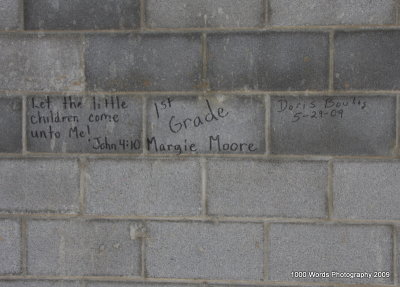 Let the little
children come
unto Me!
John 4:10
1st
Grade
Margie Moore
Doris Boulis
5-29-09
1000 Words Photography 2009